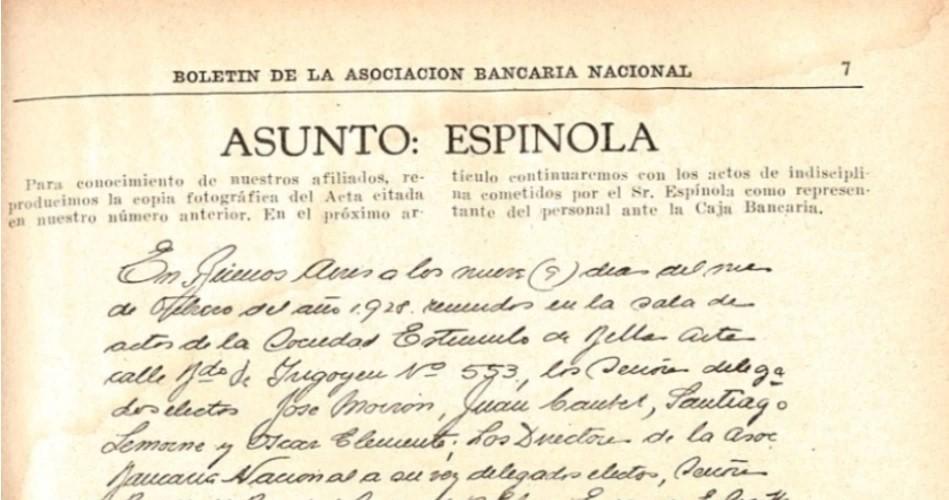 BOLETIN DE LA ASOCIACION BANCARIA NACIONAL 7
ASUNTO: ESPINOLA
Para conocimiento de nuestros afiliados, re-
producimos la copia fotográfica del Acta citada
en nuestro número anterior. En el próximo ar-
tículo continuaremos con los actos de indiscipli-
na cometidos por el Sr. Espínola como represen-
tante del personal ante la Caja Bancaria.
En Buenos Aires a los nueve (9) dias del mes
de Febrero del año 1928. reunidos en la sala de
actos de la Sociedad Estimulo de Bellas Artes
calle Bdo de Irigoyen Nº 553, los Señores delega
dos electos José Juan Santiago
Lemoine y Oscar Elemente; Los Directores de la Asoc
Bancaria Nacional a su vez delegados electos, Señores